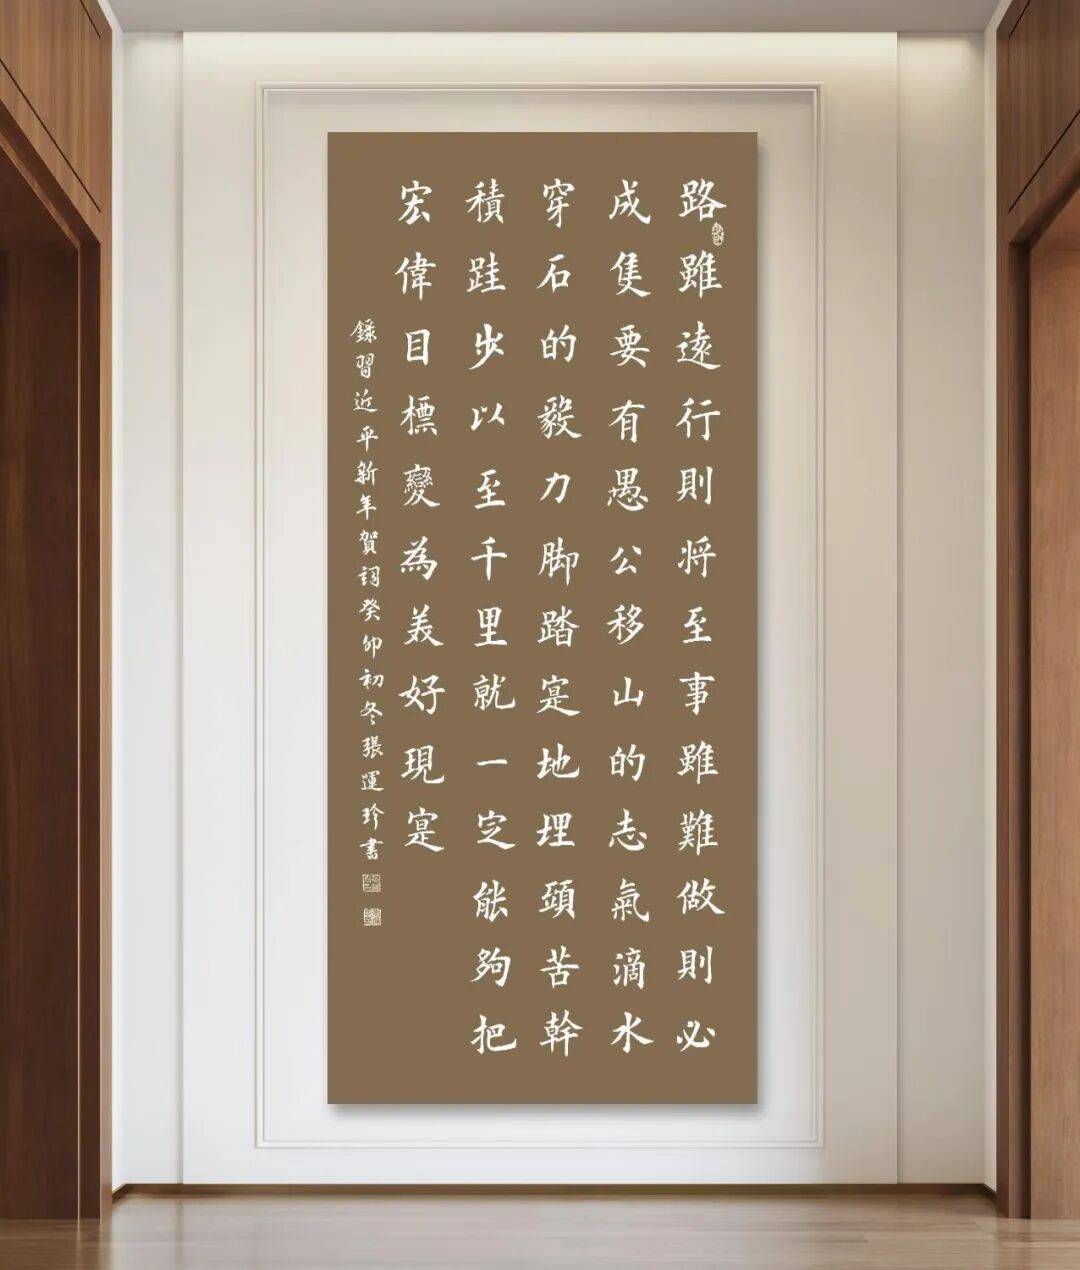 路雖遠行則将至事雖難做則必
成隻要有愚公移山的志氣滴水
穿石的毅力脚踏寔地埋頭苦幹
積跬步以至千里就一定能夠把
宏偉目標變為美好現寔
録習近平新年賀詞癸卯初冬張運珍書